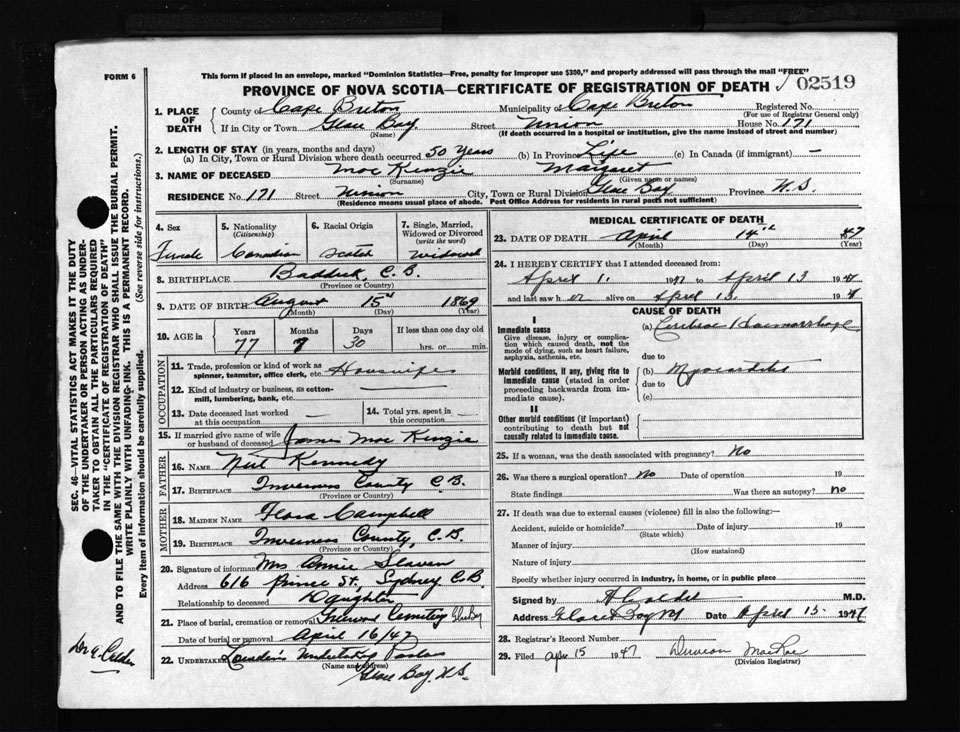 FORM 6
This form if placed in an envelope, marked "Dominion Statistics—Free, penalty for improper use $300," and properly addressed will pass through the mail "FREE"
PROVINCE OF NOVA SCOTIA—CERTIFICATE OF REGISTRATION OF DEATH 02519
1. PLACE OF DEATH
County of Cape Breton Municipality of Cape Breton Registered No.
(For use of Registrar General only)
If in City or Town Glace Bay Street Union House No. 171
(Name) (If death occurred in a hospital or institution, give the name instead of street and number)
2. LENGTH OF STAY (in years, months and days)
(a) In City, Town or Rural Division where death occurred 50 Years (b) In Province Life (c) In Canada (if immigrant) —
3. NAME OF DECEASED Mac Kenzie Margaret
(Surname) (Given name or names)
RESIDENCE No. 171 Street Union City, Town or Rural Division Glace Bay Province N.S.
(Residence means usual place of abode. Post Office Address for residents in rural parts not sufficient)
4. Sex
Female
5. Nationality
(Citizenship)
Canadian
6. Racial Origin
Scotch
7. Single, Married, Widowed or Divorced
(write the word)
Widowed
8. BIRTHPLACE Baddeck, C.B.
(Province or Country)
9. DATE OF BIRTH August 15 1869
(Month) (Day) (Year)
10. AGE in
Years Months Days If less than one day old
77 30 hrs. or min.
OCCUPATION
11. Trade, profession or kind of work as spinner, teamster, office clerk, etc. Housewife
12. Kind of industry or business, as cotton-mill, lumbering, bank, etc. —
13. Date deceased last worked at this occupation —
14. Total yrs. spent in this occupation —
15. If married give name of wife or husband of deceased James Mac Kenzie
FATHER
16. NAME Neil Kennedy
17. BIRTHPLACE Inverness County C.B.
(Province or Country)
MOTHER
18. MAIDEN NAME Flora Campbell
19. BIRTHPLACE Inverness County, C.B.
(Province or Country)
20. Signature of informant Mrs Annie Slaven
Address 616 Prince St., Sydney C.B.
Relationship to deceased Daughter
21. Place of burial, cremation or removal Cemetery Glace Bay
Date of burial or removal April 16/47
22. UNDERTAKER Undertaking Parlors
(Name and address)
Glace Bay. N.S.
MEDICAL CERTIFICATE OF DEATH
23. DATE OF DEATH April 14th 47
(Month) (Day) (Year)
24. I HEREBY CERTIFY that I attended deceased from:
April 1. 1947 to April 13 1947
and last saw her alive on April 13. 1947
CAUSE OF DEATH
I
Immediate cause
Give disease, injury or complication which caused death, not the mode of dying, such as heart failure, asphyxia, asthenia, etc.
(a) Cerebral Haemorrhage
due to
Morbid conditions, if any, giving rise to immediate cause (stated in order proceeding backwards from immediate cause).
(b) Myocarditis
due to
(c)
II
Other morbid conditions (if important) contributing to death but not causally related to immediate cause.
25. If a woman, was the death associated with pregnancy? No
26. Was there a surgical operation? No Date of operation 19
State findings Was there an autopsy? no
27. If death was due to external causes (violence) fill in also the following:—
Accident, suicide or homicide? Date of injury 19
(State which)
Manner of injury
(How sustained)
Nature of injury
Specify whether injury occurred in industry, in home, or in public place
Signed by M.D.
Address Glace Bay Date April 15 1947
28. Registrar's Record Number
29. Filed Apr 15 1947 Duncan MacRae
(Division Registrar)
SEC. 46—VITAL STATISTICS ACT MAKES IT THE DUTY
OF THE UNDERTAKER OR PERSON ACTING AS UNDER-
TAKER TO OBTAIN ALL THE PARTICULARS REQUIRED
IN THE "CERTIFICATE OF REGISTRATION OF DEATH"
AND TO FILE THE SAME WITH THE DIVISION REGISTRAR WHO SHALL ISSUE THE BURIAL PERMIT.
WRITE PLAINLY WITH UNFADING INK. THIS IS A PERMANENT RECORD.
Every item of information should be carefully supplied. (See reverse side for instructions.)